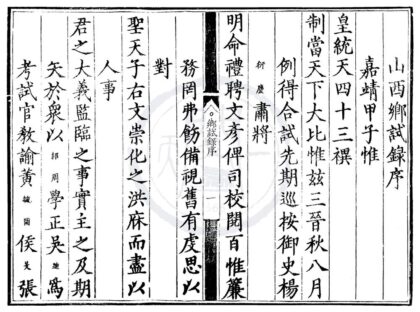 山西鄉試錄序
嘉靖甲子惟
皇統天四十三禩
制當天下大比惟茲三晉秋八月
例得合試先期巡按御史楊
肅將
明命禮聘文彥俾司校閱百惟廉
鄉試錄序
一
務罔弗飭備視舊有虔思以
對
聖天子右文崇化之洪庥而盡以
人事
君之大義監臨之事實主之及期
矢於眾以 學正吳 爲
考試官教諭黃 侯 張